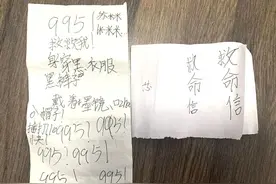 995!
救救我!
身穿黑衣服
黑裤子
戴着墨镜、口罩
小帽子
995! 995!
995! 995!
995! 995!
救命信
救命信